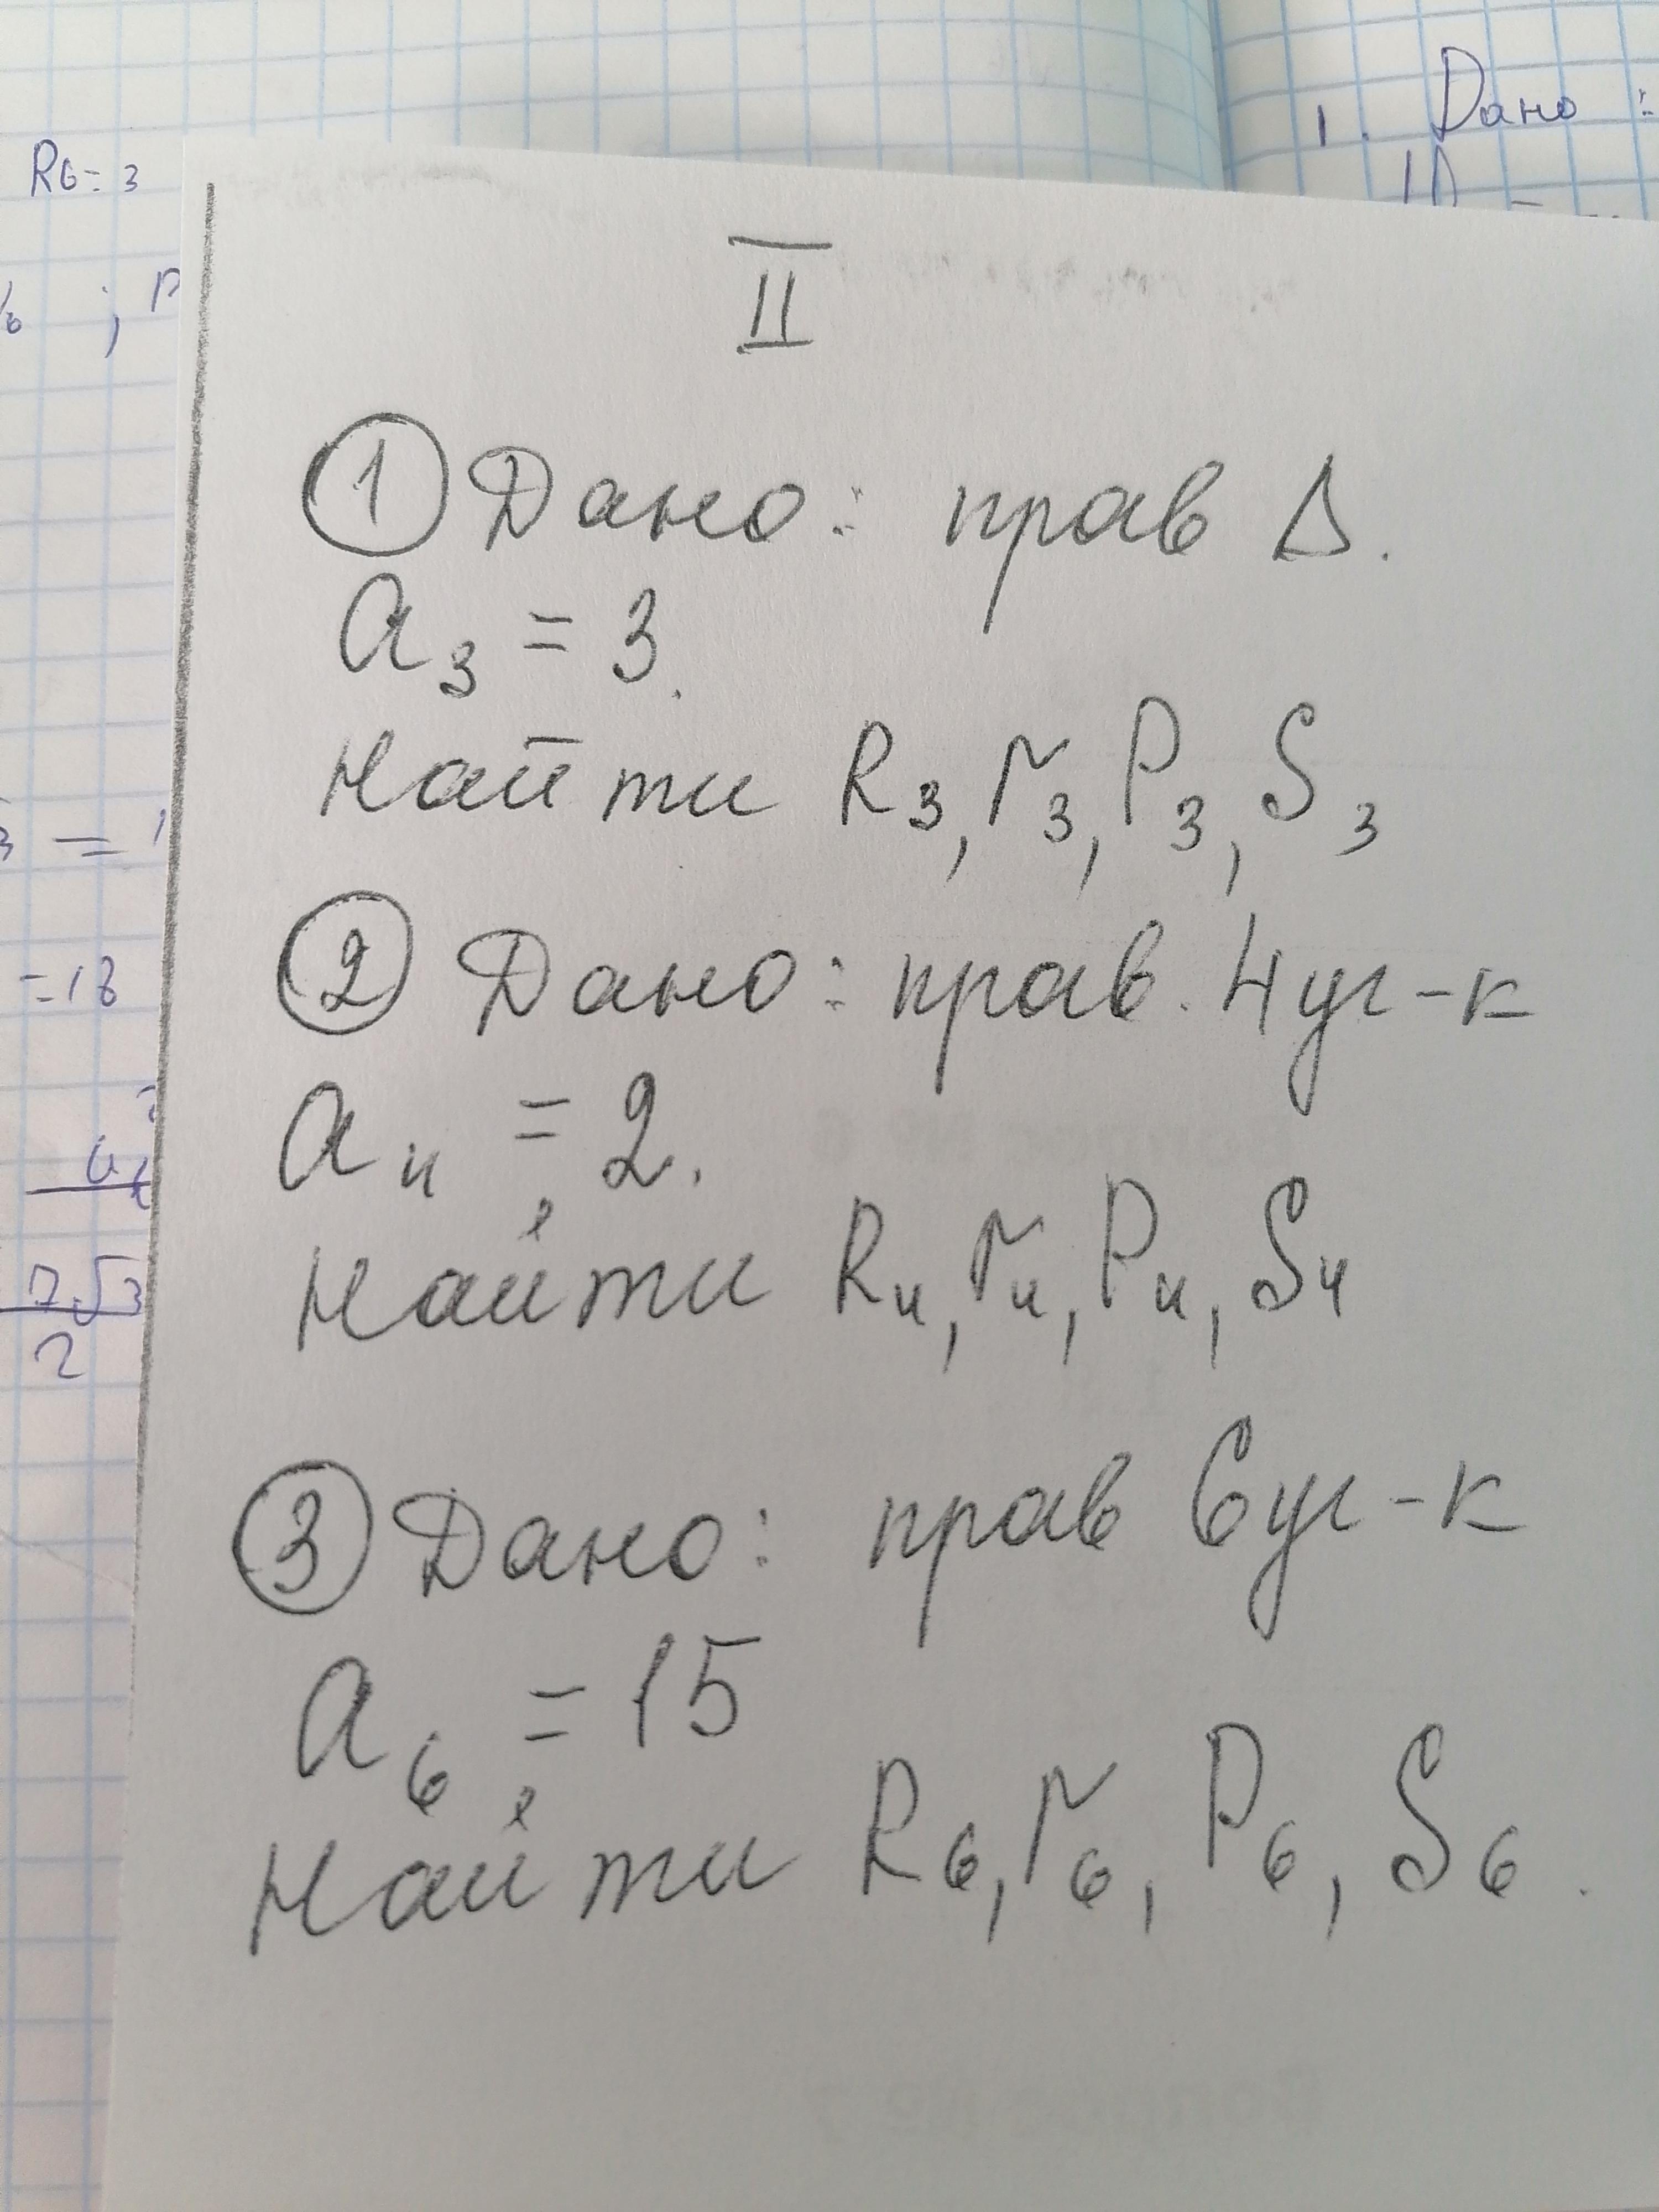 1. Дано:
R6=3
II
① Дано: прав Δ.
a₃ = 3.
Найти R₃, r₃, P₃, S₃
② Дано: прав. 4уг-к
a₄ = 2.
Найти R₄, r₄, P₄, S₄
③ Дано: прав 6уг-к
a₆ = 15
Найти R₆, r₆, P₆, S₆.
=18
7√3
2